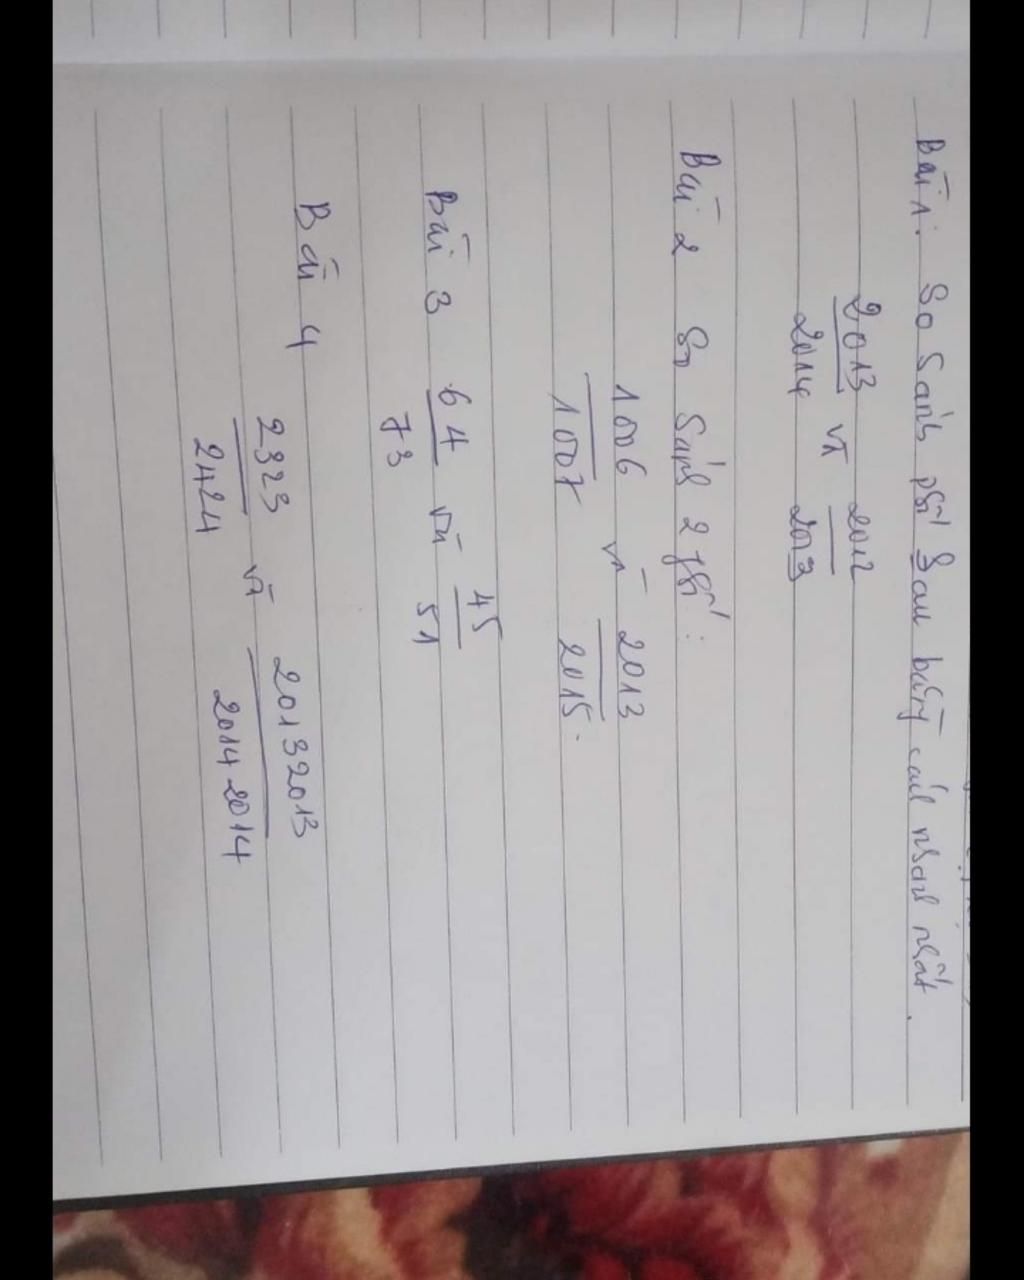 Bài 1: So sánh psố sau bằng cách nhanh nhất.
2013/2014 và 2012/2013
Bài 2 So sánh 2 psố:
1006/1007 và 2013/2015.
Bài 3 64/73 và 45/51
Bài 4
2323/2424 và 20132013/20142014